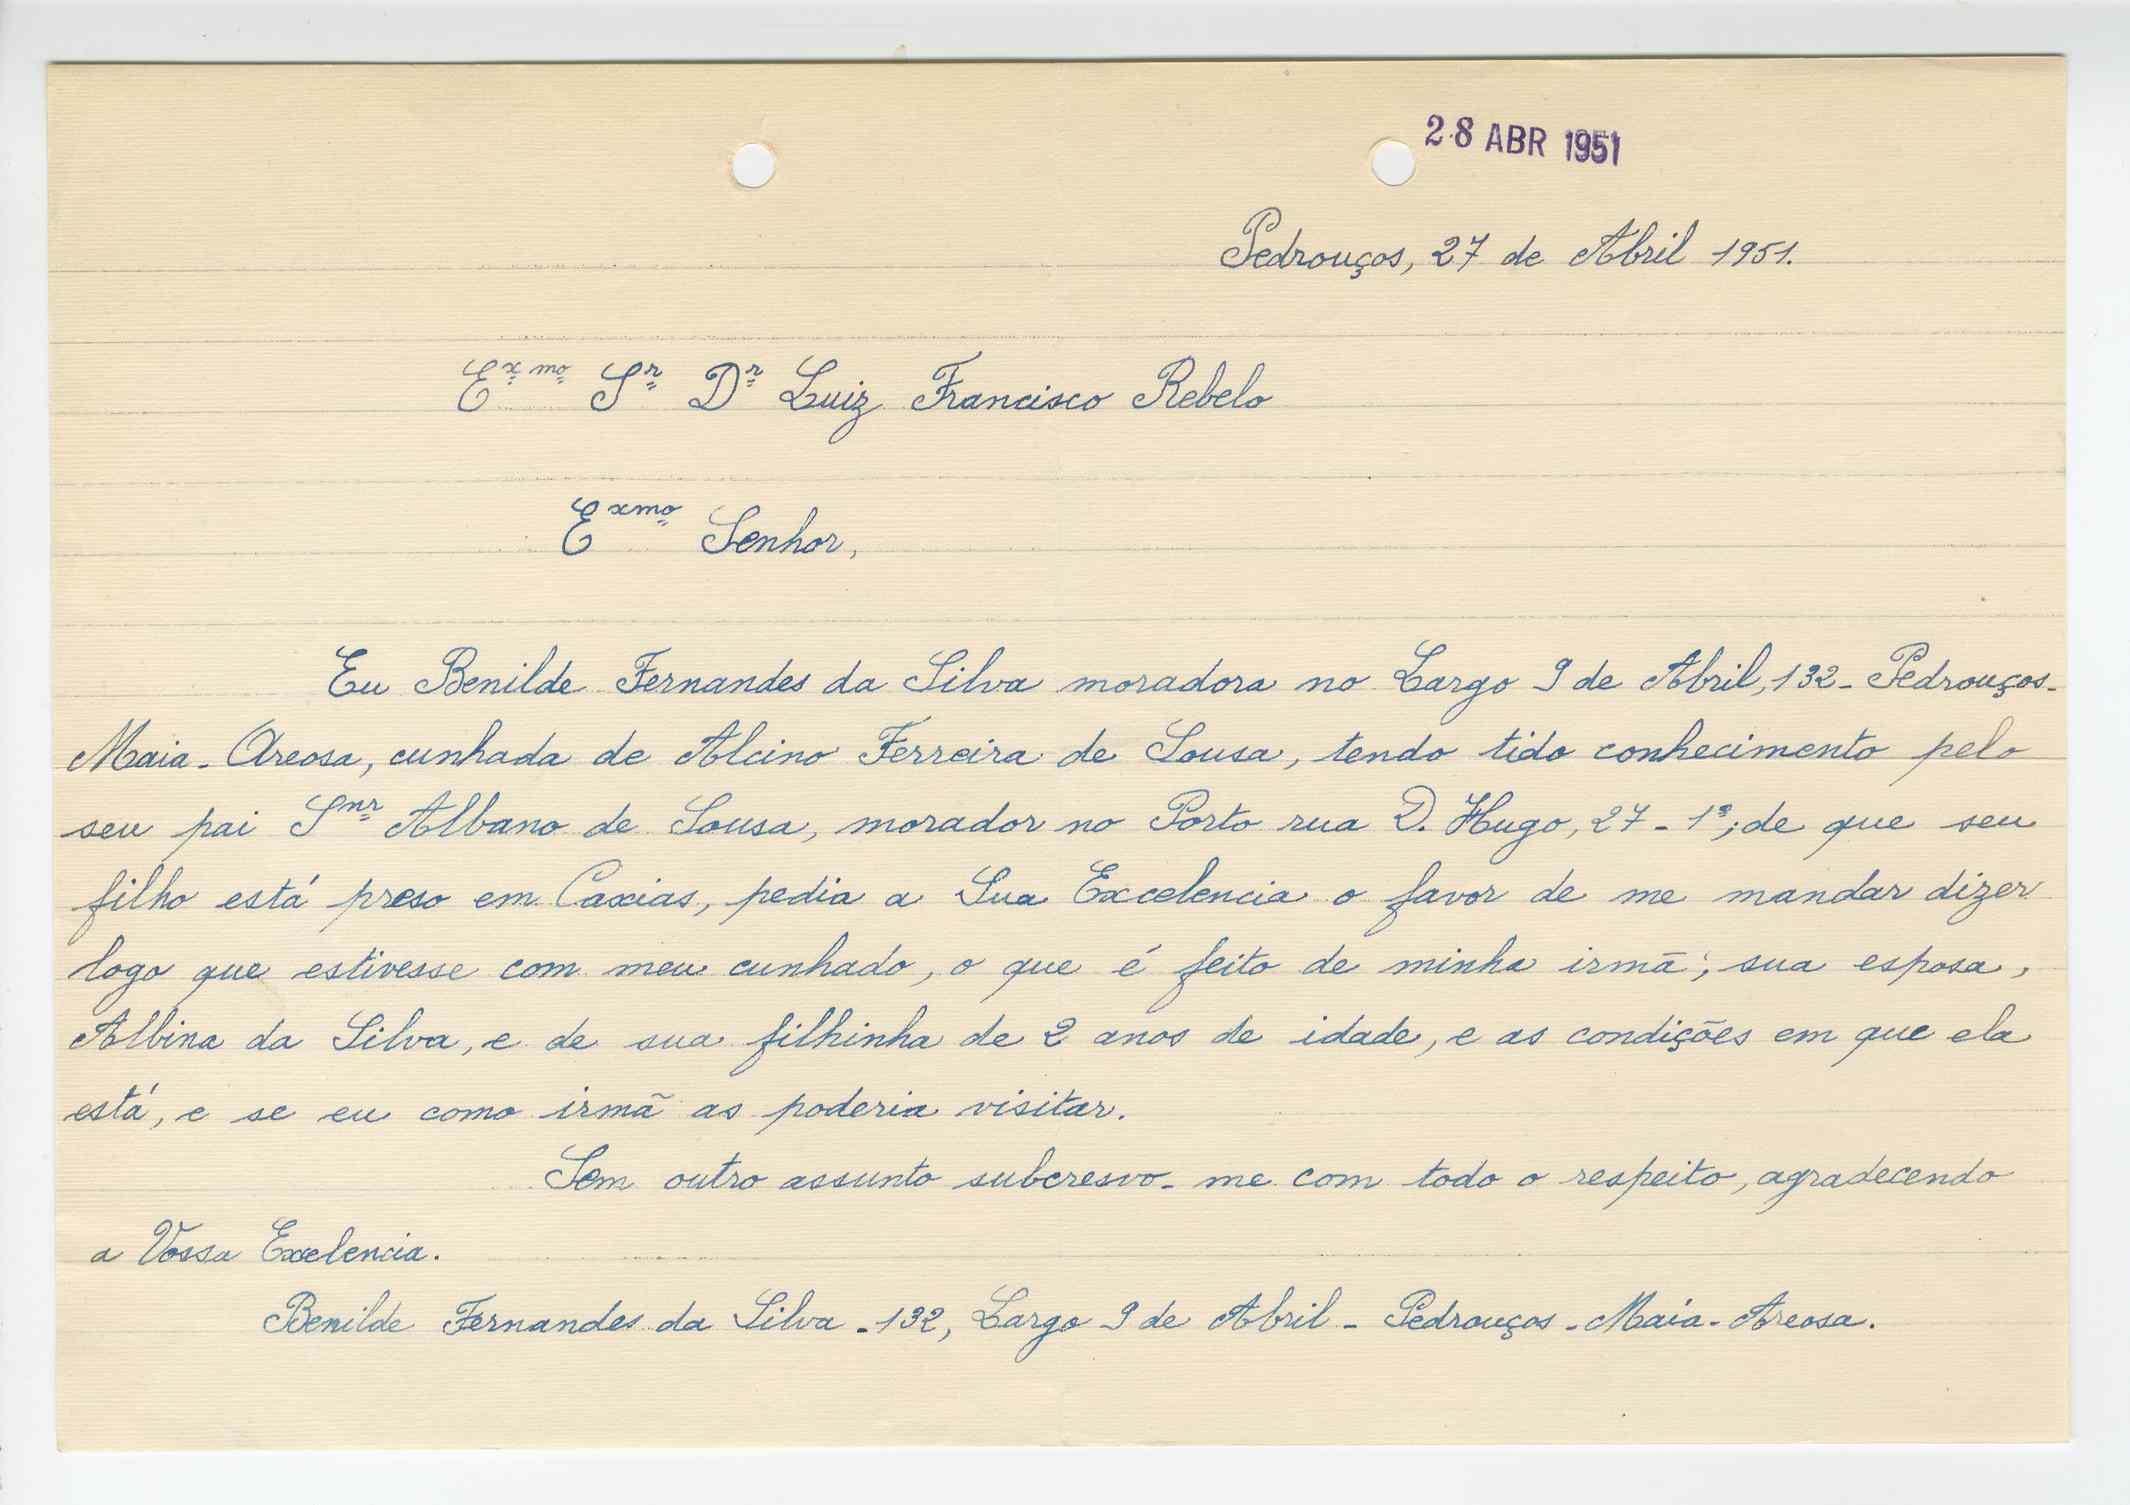 28 ABR 1951
Pedrouços, 27 de Abril 1951.
Exmo Sr Dr Luiz Francisco Rebelo
Exmo Senhor,
Eu Benilde Fernandes da Silva moradora no Largo 9 de Abril, 132 - Pedrouços -
Maia - Areosa, cunhada de Alcino Ferreira de Sousa, tendo tido conhecimento pelo
seu pai Snr Albano de Sousa, morador no Porto rua D. Hugo, 27 - 1º; de que seu
filho está preso em Caxias, pedia a Sua Excelencia o favor de me mandar dizer
logo que estivesse com meu cunhado, o que é feito de minha irmã; sua esposa,
Albina da Silva, e de sua filhinha de 2 anos de idade, e as condições em que ela
está, e se eu como irmã as poderia visitar.
Sem outro assunto subcresvo-me com todo o respeito, agradecendo
a Vossa Exelencia.
Benilde Fernandes da Silva - 132, Largo 9 de Abril - Pedrouços - Maia - Areosa.